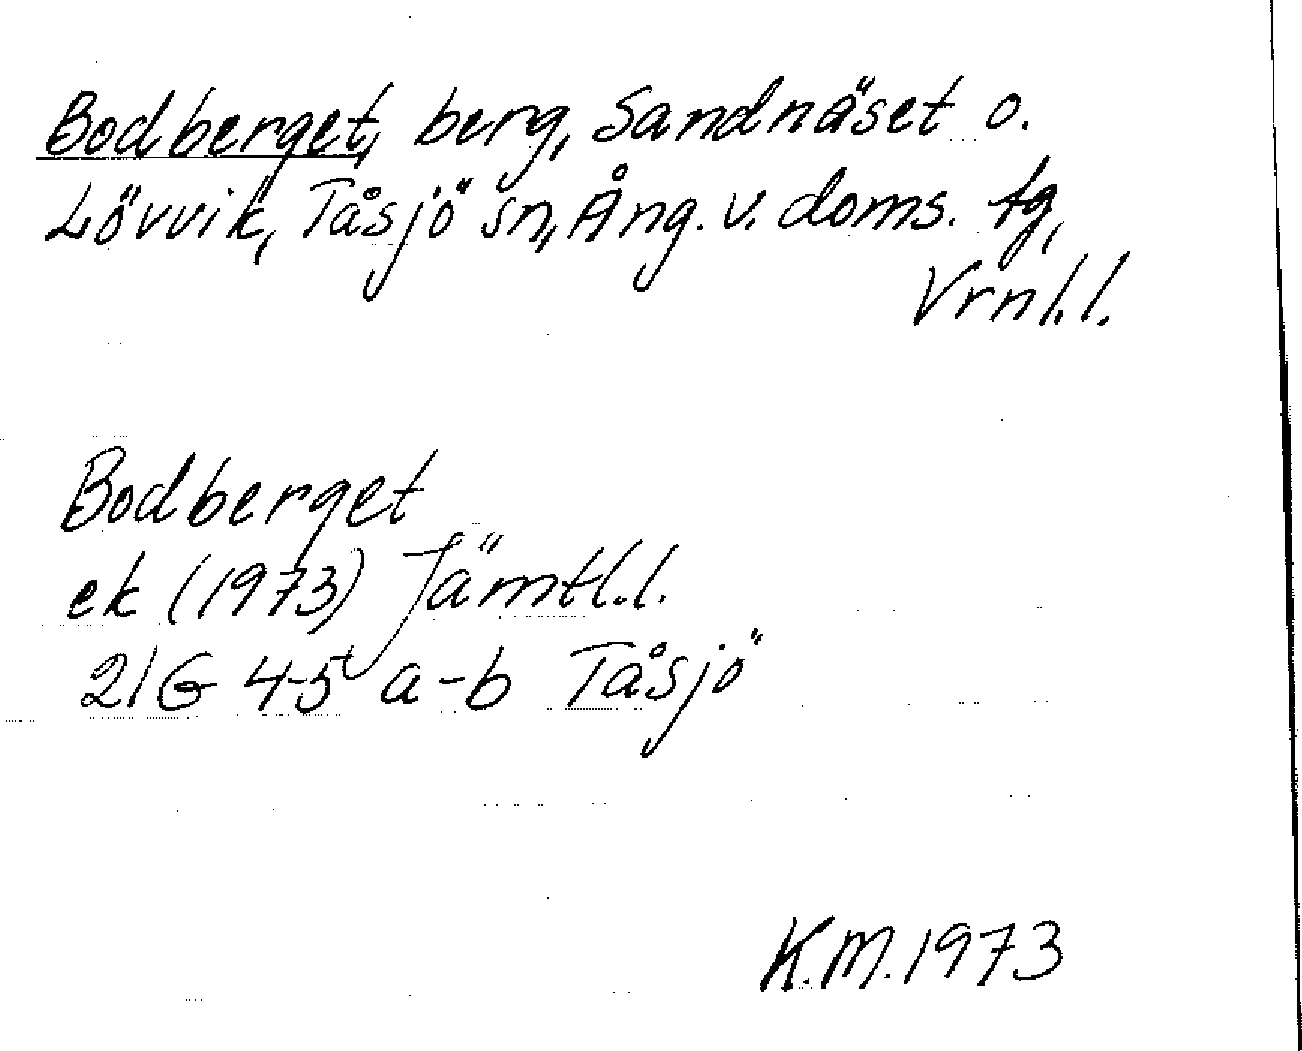 Bodberget, berg, Sandnäset o.
Lövvik, Tåsjö sn, Ång. v. doms. tg,
Vrnl.l.
Bodberget
ek (1973) Jämtl.l.
21G 4-5 a-b Tåsjö
K.M. 1973